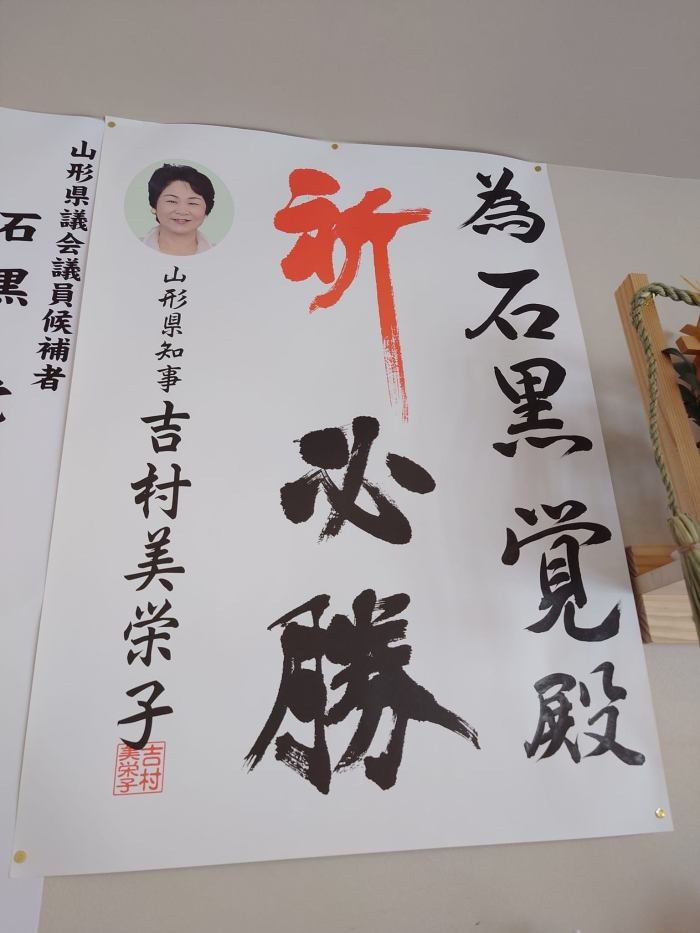 為石黒覚殿
祈必勝
山形県知事 吉村美栄子
吉村美栄子
山形県議会議員候補者
石黒